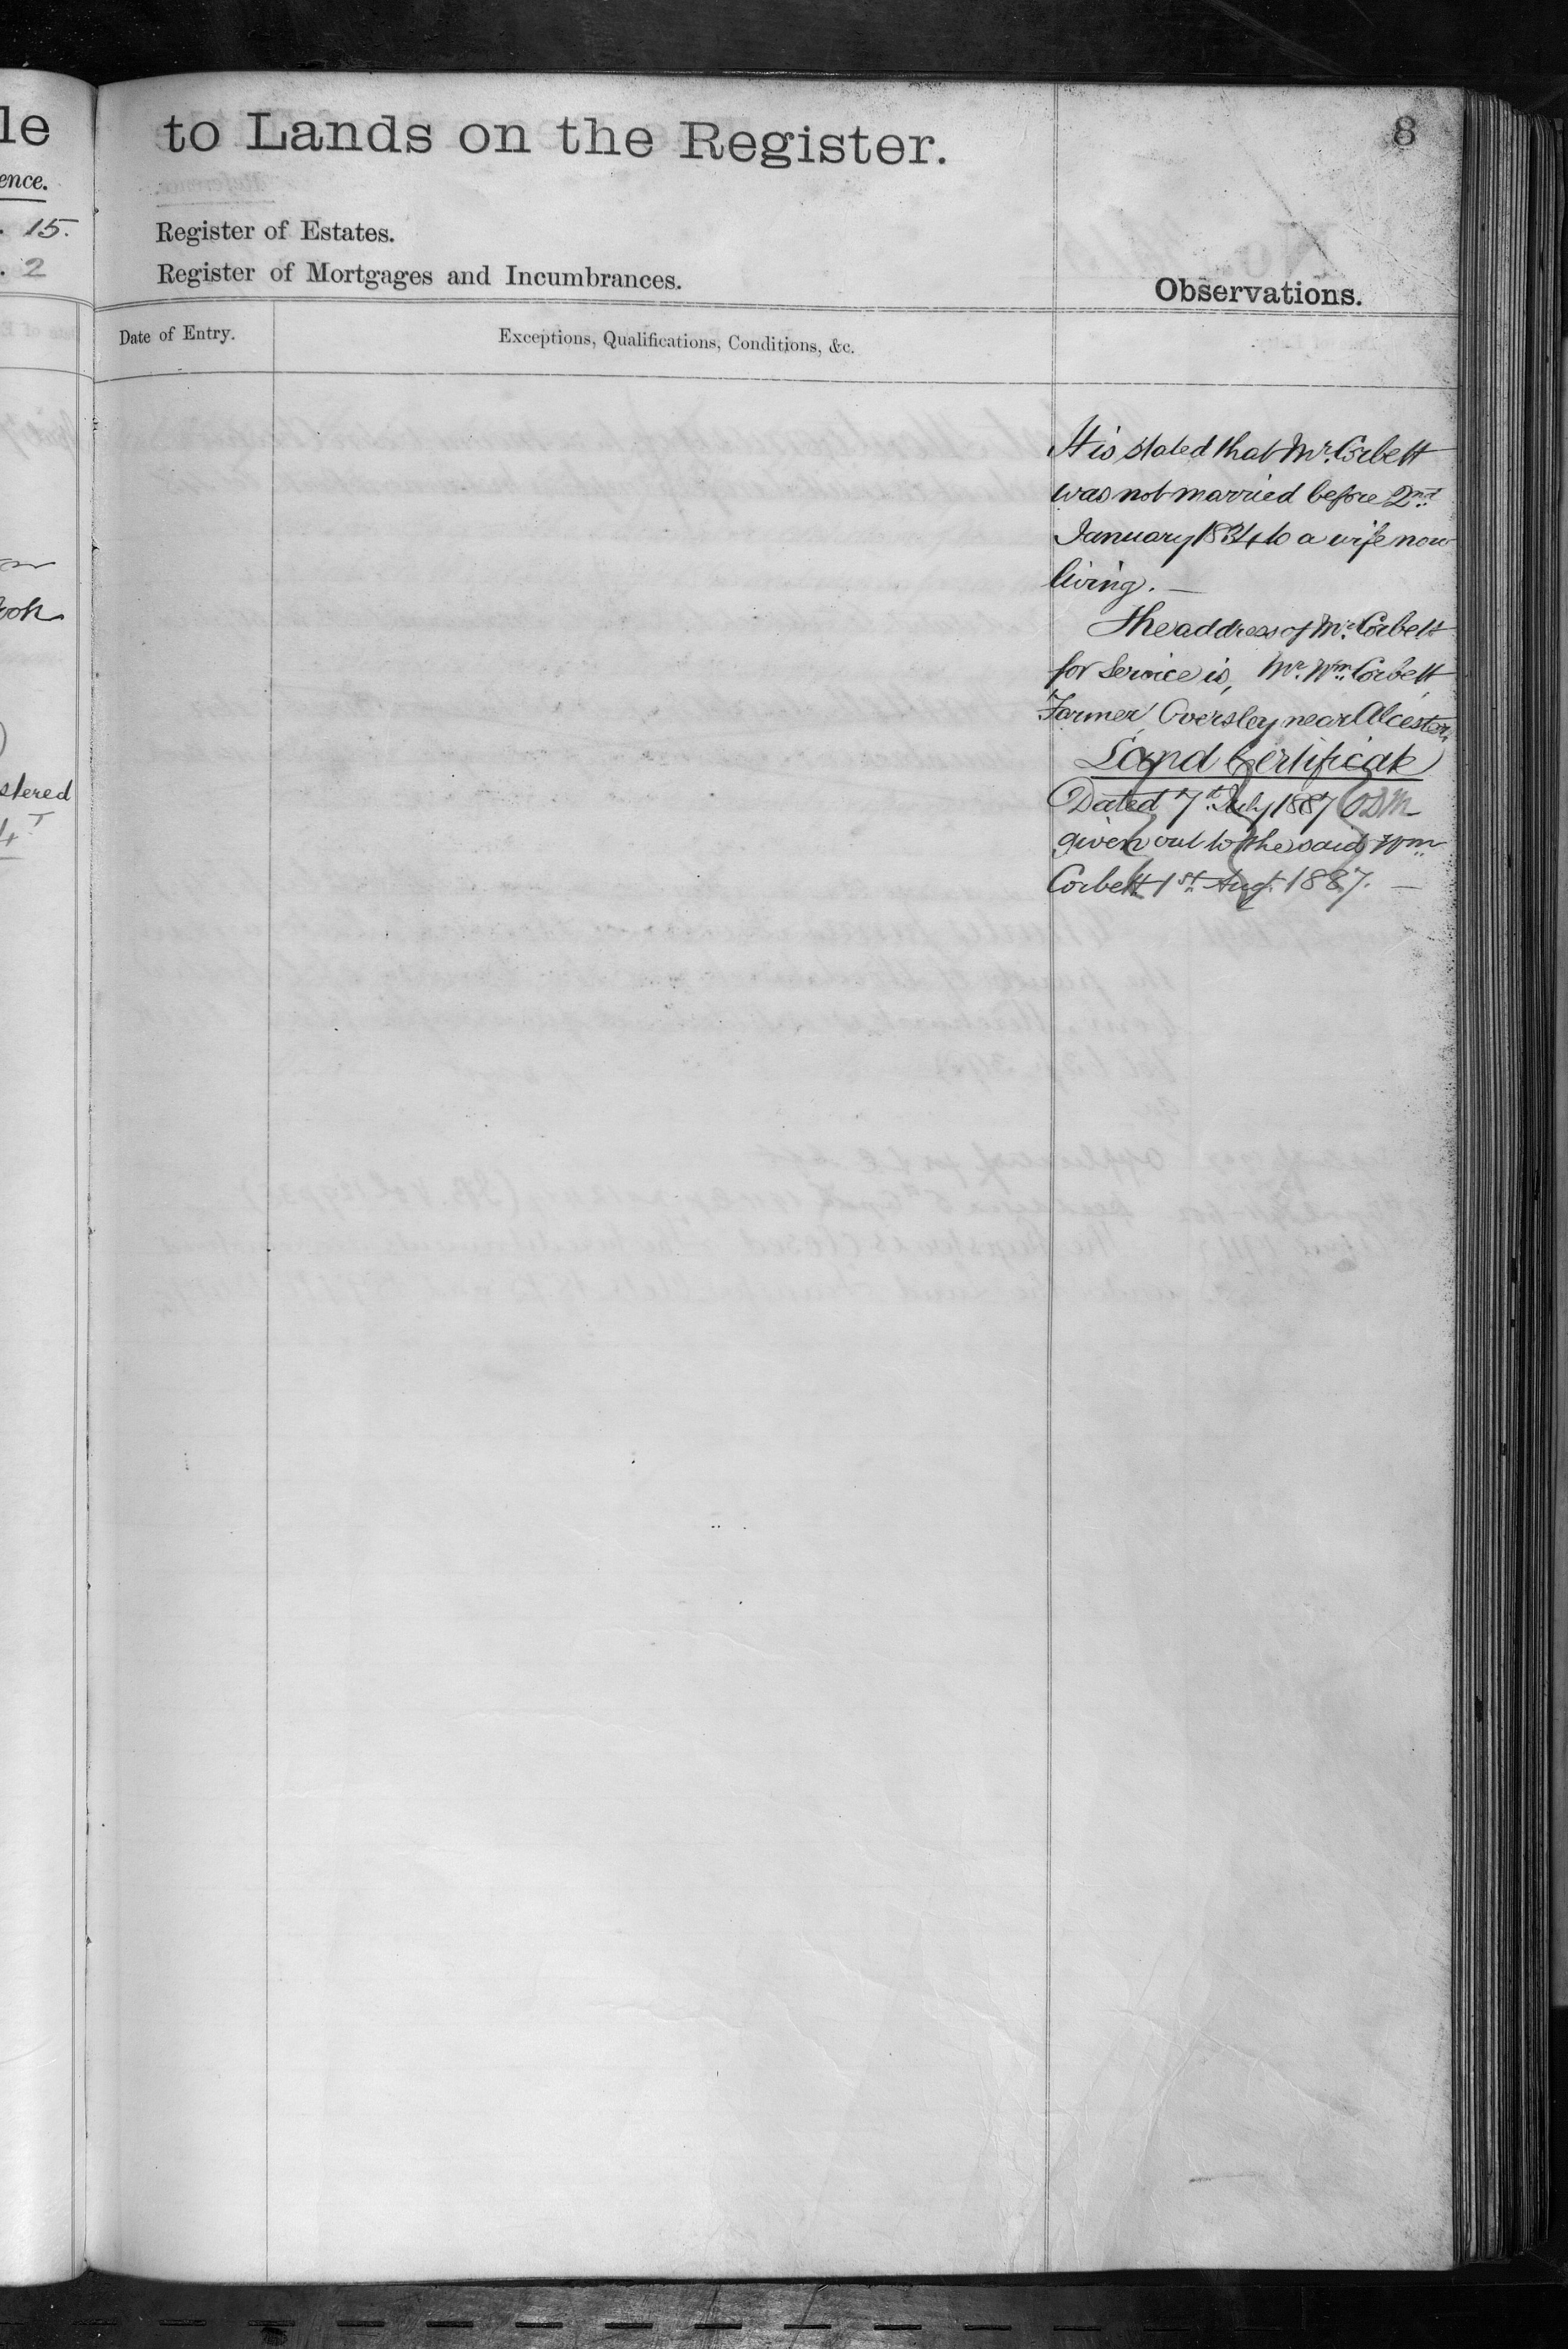 le
ence.
15.
2
ook
stered
to Lands on the Register.
8
Register of Estates.
Register of Mortgages and Incumbrances.
Observations.
Date of Entry.
Exceptions, Qualifications, Conditions, &c.
It is stated that Mr. Corbett
was not married before 2nd
January 1834 to a wife now
living. —
The address of Mr. Corbett
for Service is, Mr. Wm. Corbett
Farmer, Oversley near Alcester,
Land Certificate
Dated 7th July 1887
given out to the said Wm
Corbett 1st Augt. 1887. —